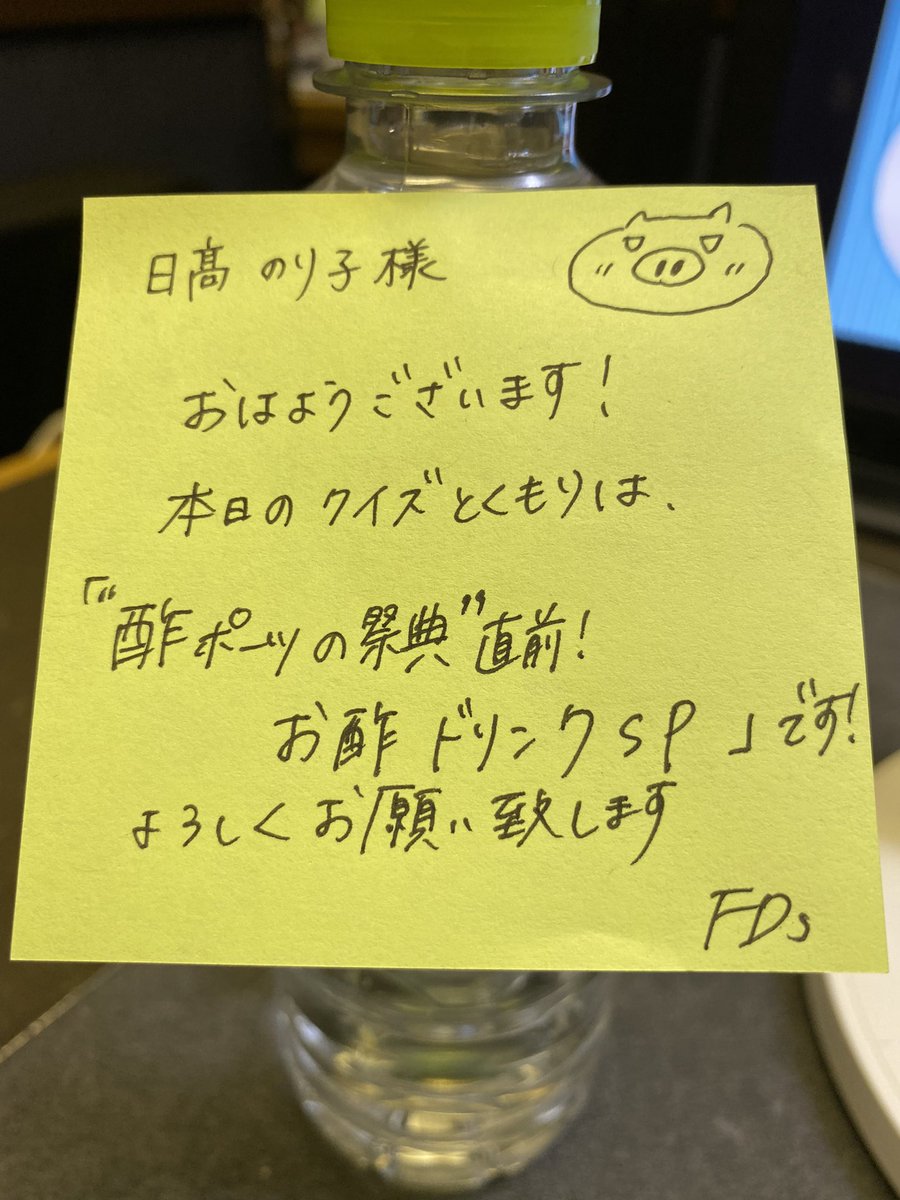 日髙 のり子 様
おはようございます!
本日の クイズとくもりは、
「"酢ポーツの祭典"直前!
お酢 ドリンクSP」です!
よろしくお願い致します
FDs